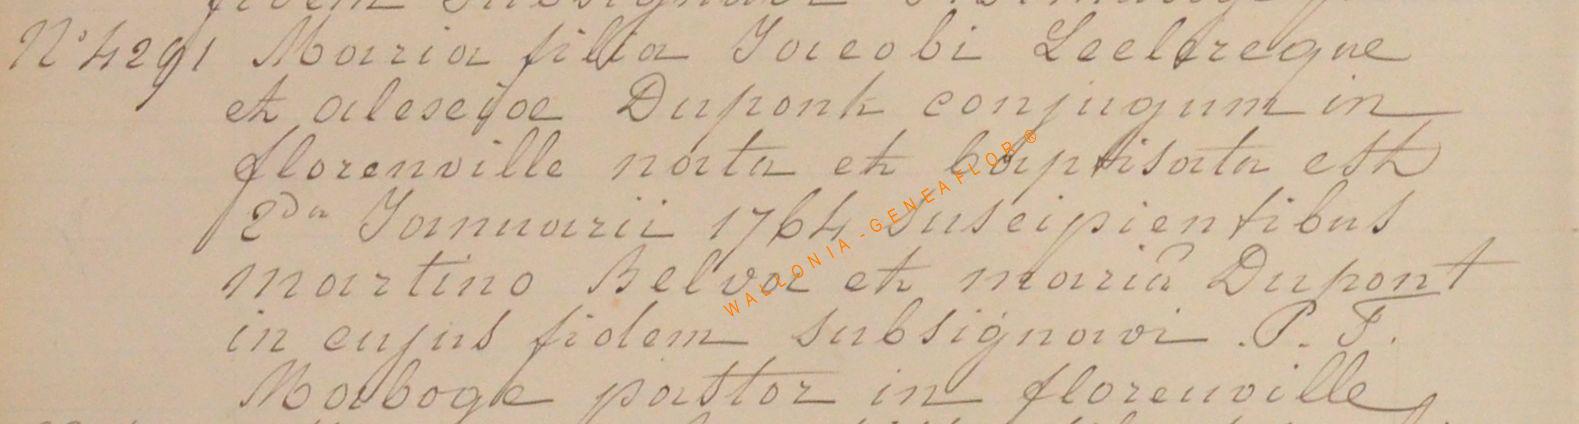 fidem subsignavi
N° 4291 Maria filia Jacobi Leclercque
et alexiae Dupont conjugum in
florenville nata et baptisata est
2da Januarii 1764 suscipientibus
martino Belva et maria Dupont
in cujus fidem subsignavi . P. F.
Maboge pastor in florenville
WALLONIA - GENEAFLOR ®